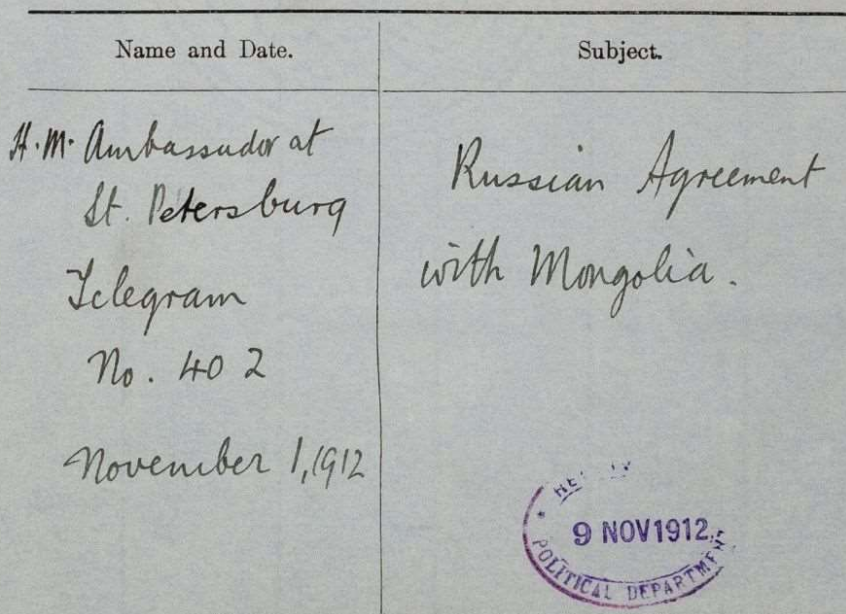 Name and Date.
Subject.
H.M. Ambassador at
St. Petersburg
Telegram
No. 402
November 1, 1912
Russian Agreement
with Mongolia.
9 NOV 1912
POLITICAL DEPARTMENT